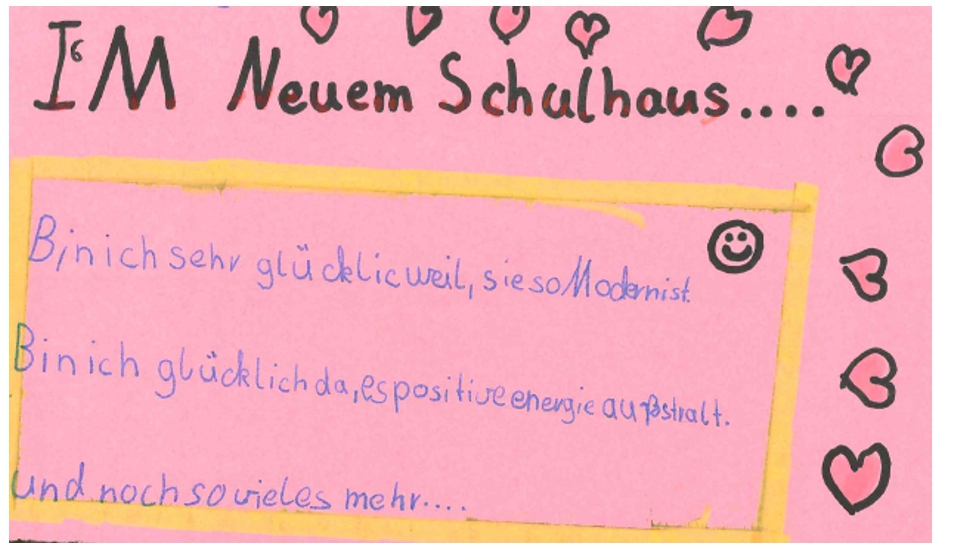 IM Neuem Schulhaus....
Bin ich sehr glücklic weil, sie so Modern ist.
Bin ich glücklich da, es positive energie außstralt.
und noch so vieles mehr....